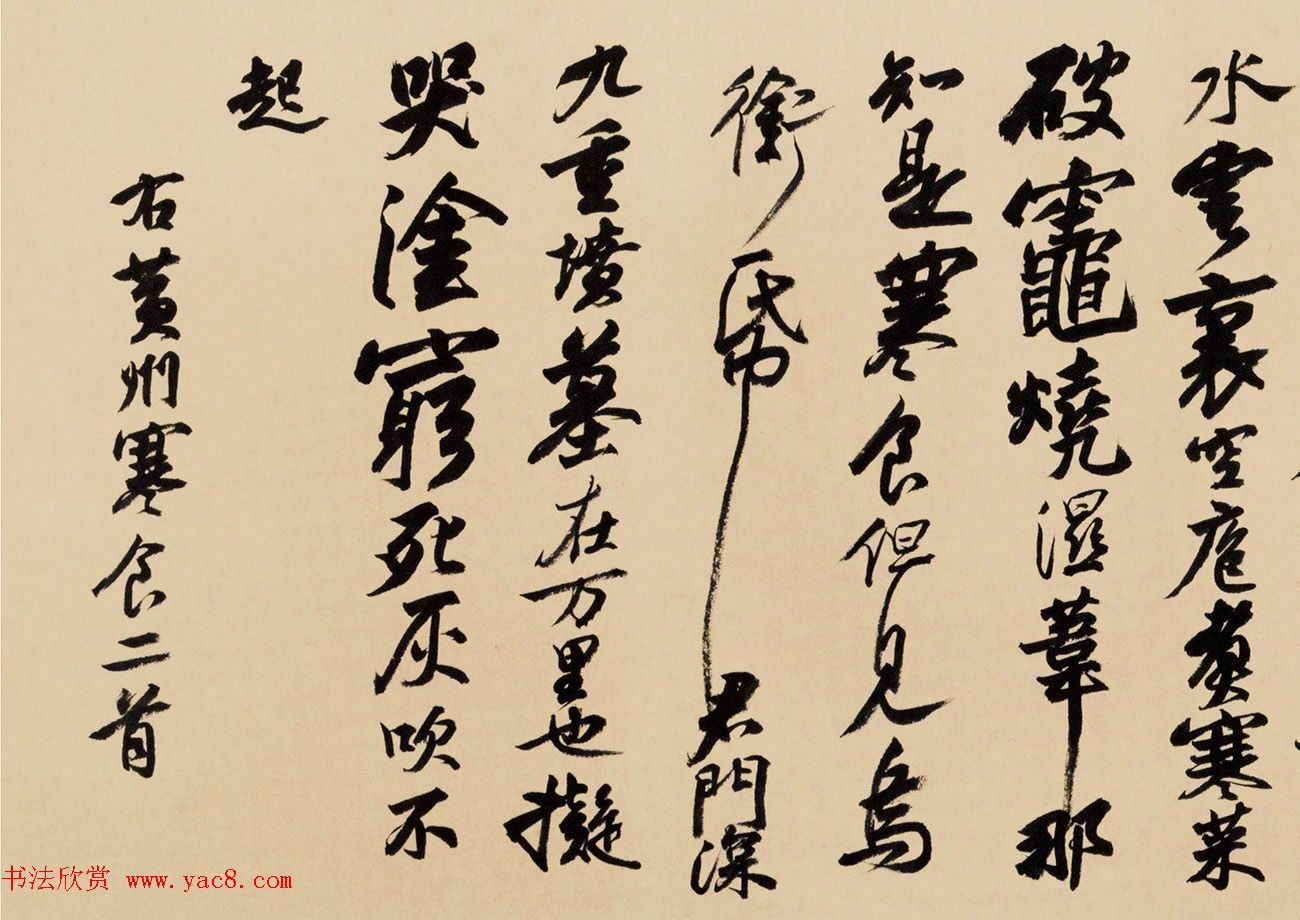 水雲裏空庖煮寒菜
破竈燒濕葦那
知是寒食但見烏
銜帋君門深
九重墳墓在万里也擬
哭塗窮死灰吹不
起
右黃州寒食二首
书法欣赏 www.yac8.com